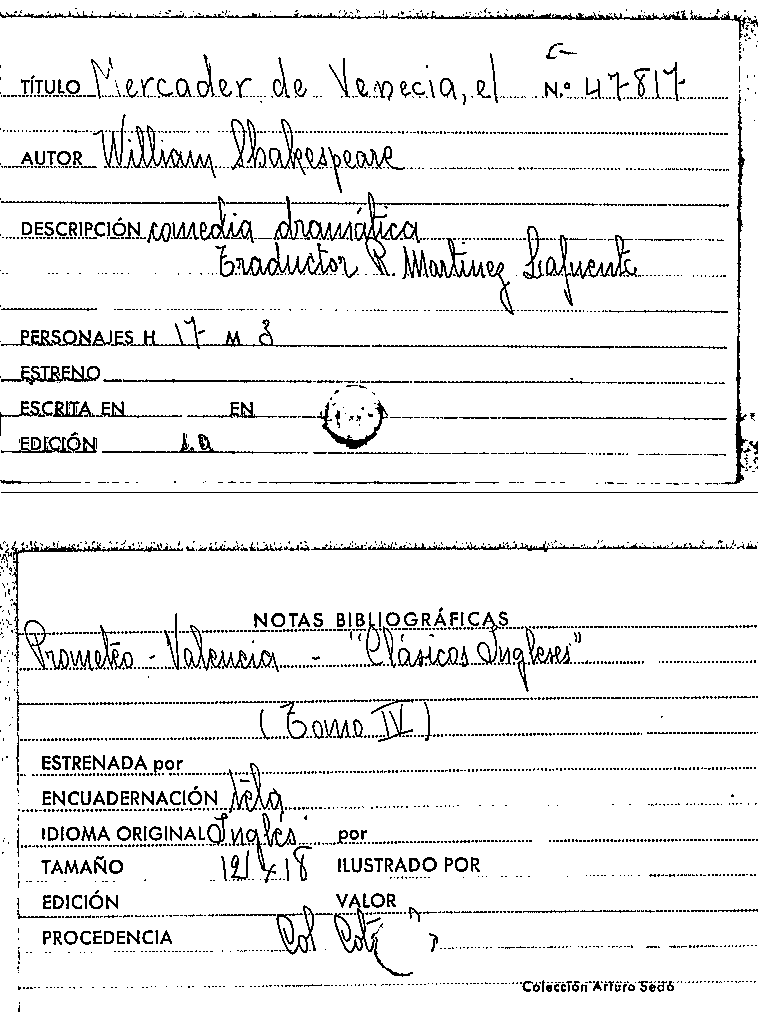 C-
TÍTULO Mercader de Venecia, el N.º 47-817
AUTOR William Shakespeare
DESCRIPCIÓN comedia dramática
Traductor R. Martinez Lafuente
PERSONAJES H 17 M 3
ESTRENO
ESCRITA EN EN
EDICIÓN s.a
NOTAS BIBLIOGRÁFICAS
Prometeo - Valencia - "Clásicos Ingleses"
(Tomo IV)
ESTRENADA por
ENCUADERNACIÓN tela
IDIOMA ORIGINAL Inglés por
TAMAÑO 12 x 18 ILUSTRADO POR
EDICIÓN VALOR
PROCEDENCIA Col
Colección Arturo Sedó